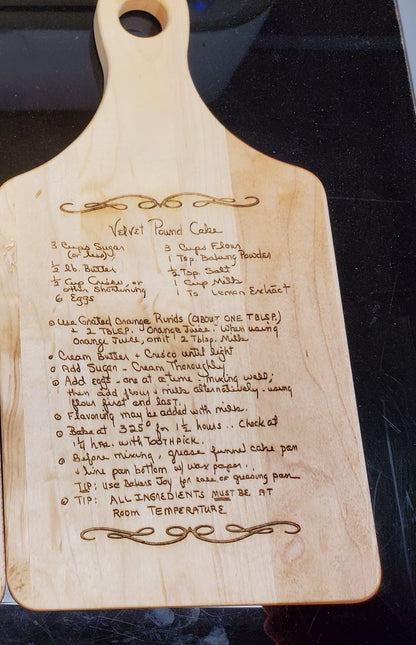 Velvet Pound Cake
3 Cups Sugar
(or less)
½ lb. Butter
½ Cup Crisco, or
other shortening
6 Eggs
3 Cups Flour
1 Tsp. Baking Powder
½ Tsp Salt
1 Cup Milk
1 Ts Lemon Extract
Use Grated Orange Rinds (ABOUT ONE TBLSP.)
+ 2 TBLSP. Orange Juice. When using
Orange Juice, omit 2 Tblsp. Milk
Cream Butter + Crisco until light
Add Sugar - Cream Thoroughly
Add eggs - one at a time - mixing well;
then add flour & milk alternatively. using
flour first and last.
Flavoring may be added with milk.
Bake at 325° for 1½ hours.. Check at
1¼ hrs. with TOOTHPICK.
Before mixing, grease funnel cake pan
& line pan bottom w/ wax paper..
TIP: Use Bakers Joy for ease of greasing pan
TIP: ALL INGREDIENTS MUST BE AT
ROOM TEMPERATURE